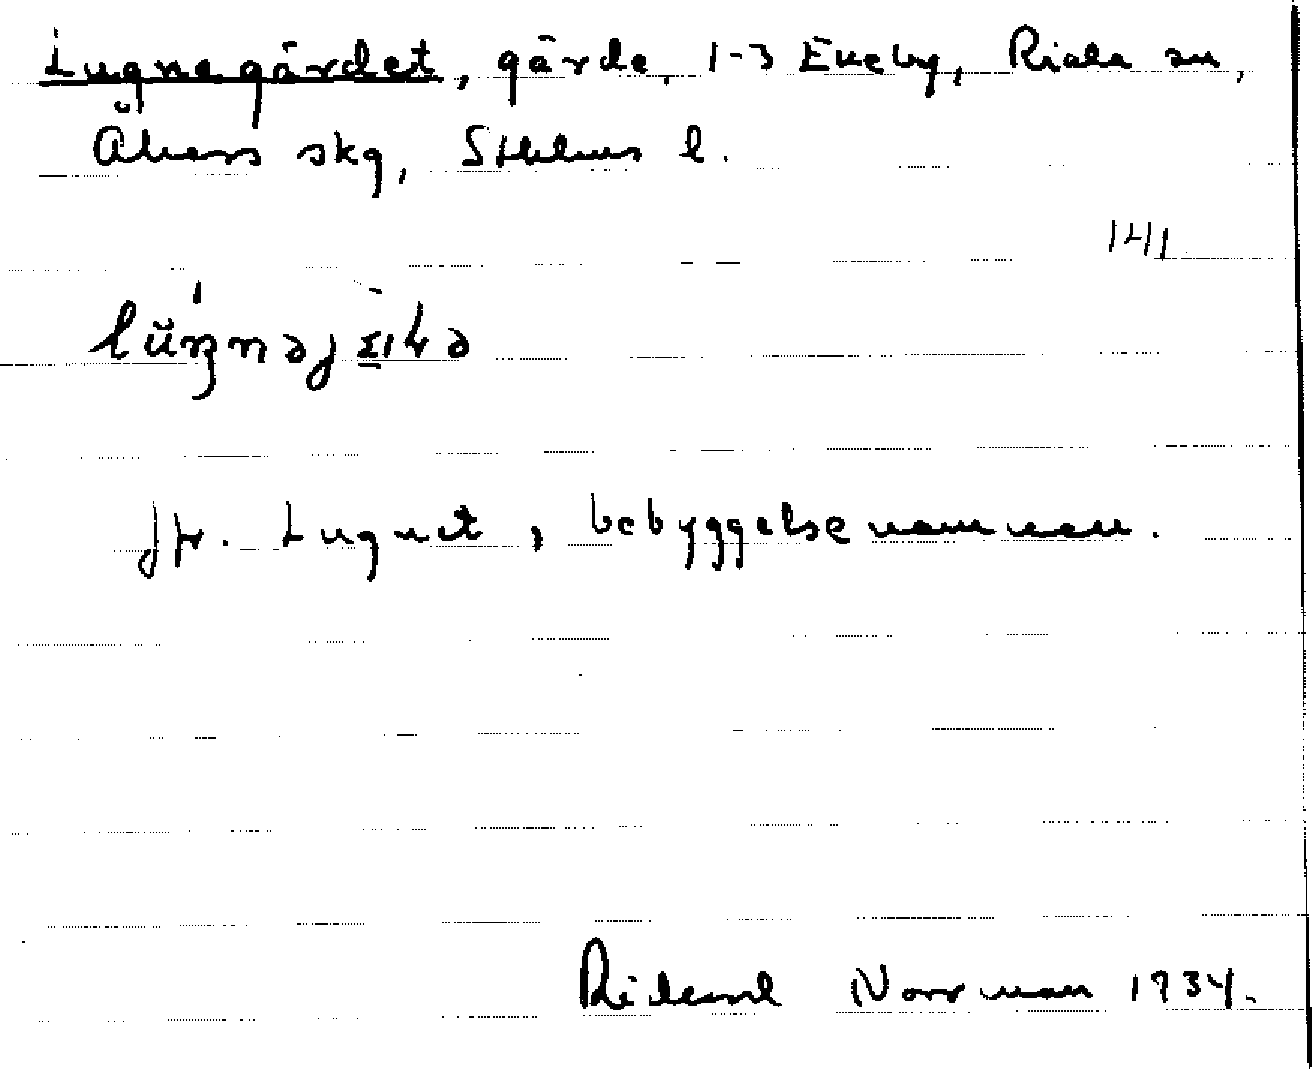 Lugnegärdet, gärde, 1-3 Ekeby, Riala sn,
Åkers skg, Sthlms l.
141
Jfr. Lugnet, bebyggelsenamnen.
Rikard Norrman 1934.